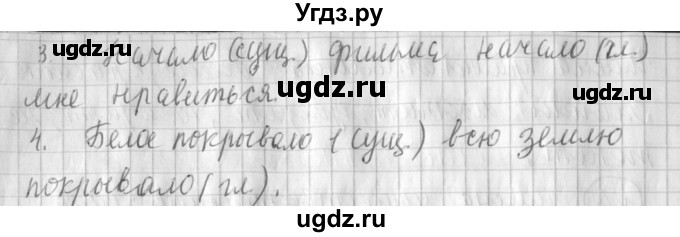 Угдз.ру
3. Начало (сущ.) фильма начало (гл.)
мне нравиться.
4. Белое покрывало (сущ.) всю землю
покрывало (гл.).
gdz.ru
ugdz.ru
ugdz.ru
ugdz.ru
ugdz.ru
ugdz.ru
ugdz.ru